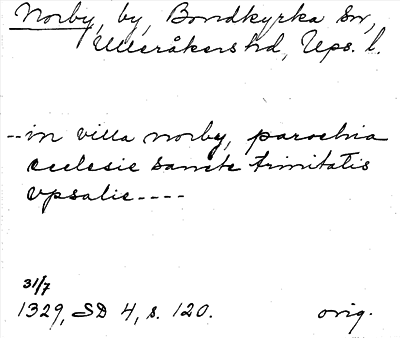 Norby, by, Bondkyrka sn,
Ulleråkers hd, Ups. l.
--in villa norby, parochia
ecclesie sancte trinitatis
vpsalie----
31/7
1329, SD 4, s. 120. orig.